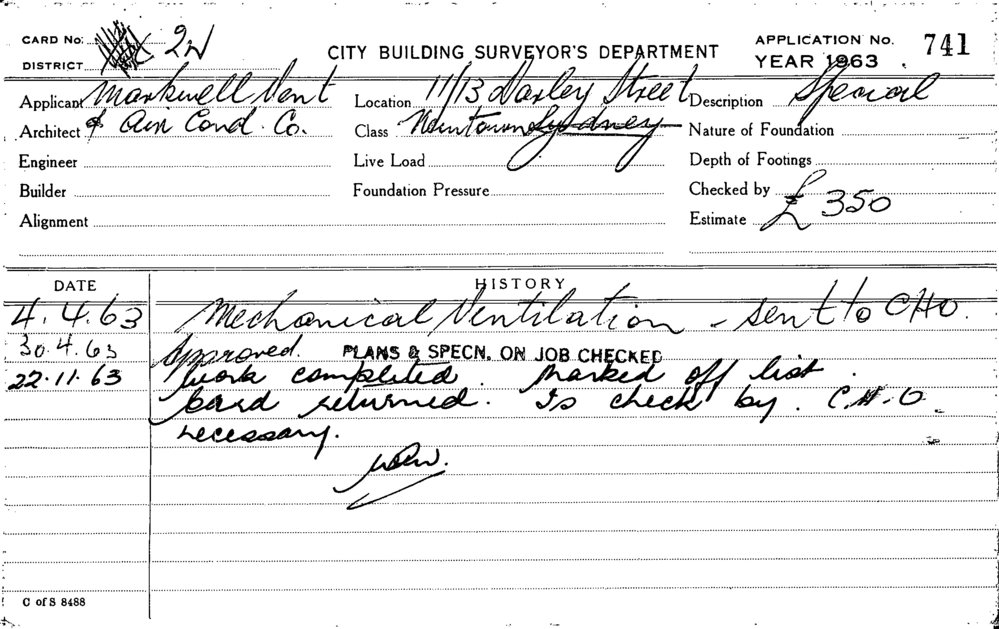 CARD No. 2N
CITY BUILDING SURVEYOR'S DEPARTMENT
APPLICATION No. 741
DISTRICT
YEAR 1963
Applicant Markwell Vent Location 11/13 Darley Street Description Special
Architect & Air Cond. Co. Class Newtown Sydney Nature of Foundation
Engineer Live Load Depth of Footings
Builder Foundation Pressure Checked by
Alignment Estimate £350
DATE HISTORY
4.4.63 Mechanical Ventilation - sent to CHO.
30.4.63 Approved. PLANS & SPECN. ON JOB CHECKED
22.11.63 Work completed. Marked off list.
Card returned. Is check by. C.H.O
necessary.
C of S 8488